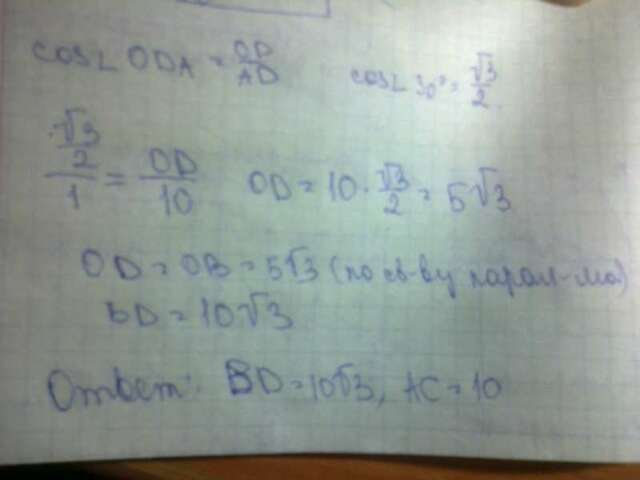 cos∠ ODA = OD/AD   cos∠ 30° = √3/2.
(√3/2)/1 = OD/10   OD = 10 · √3/2 = 5√3
OD = OB = 5√3 (по св-ву парал-ма)
BD = 10√3
Ответ: BD = 10√3, AC = 10